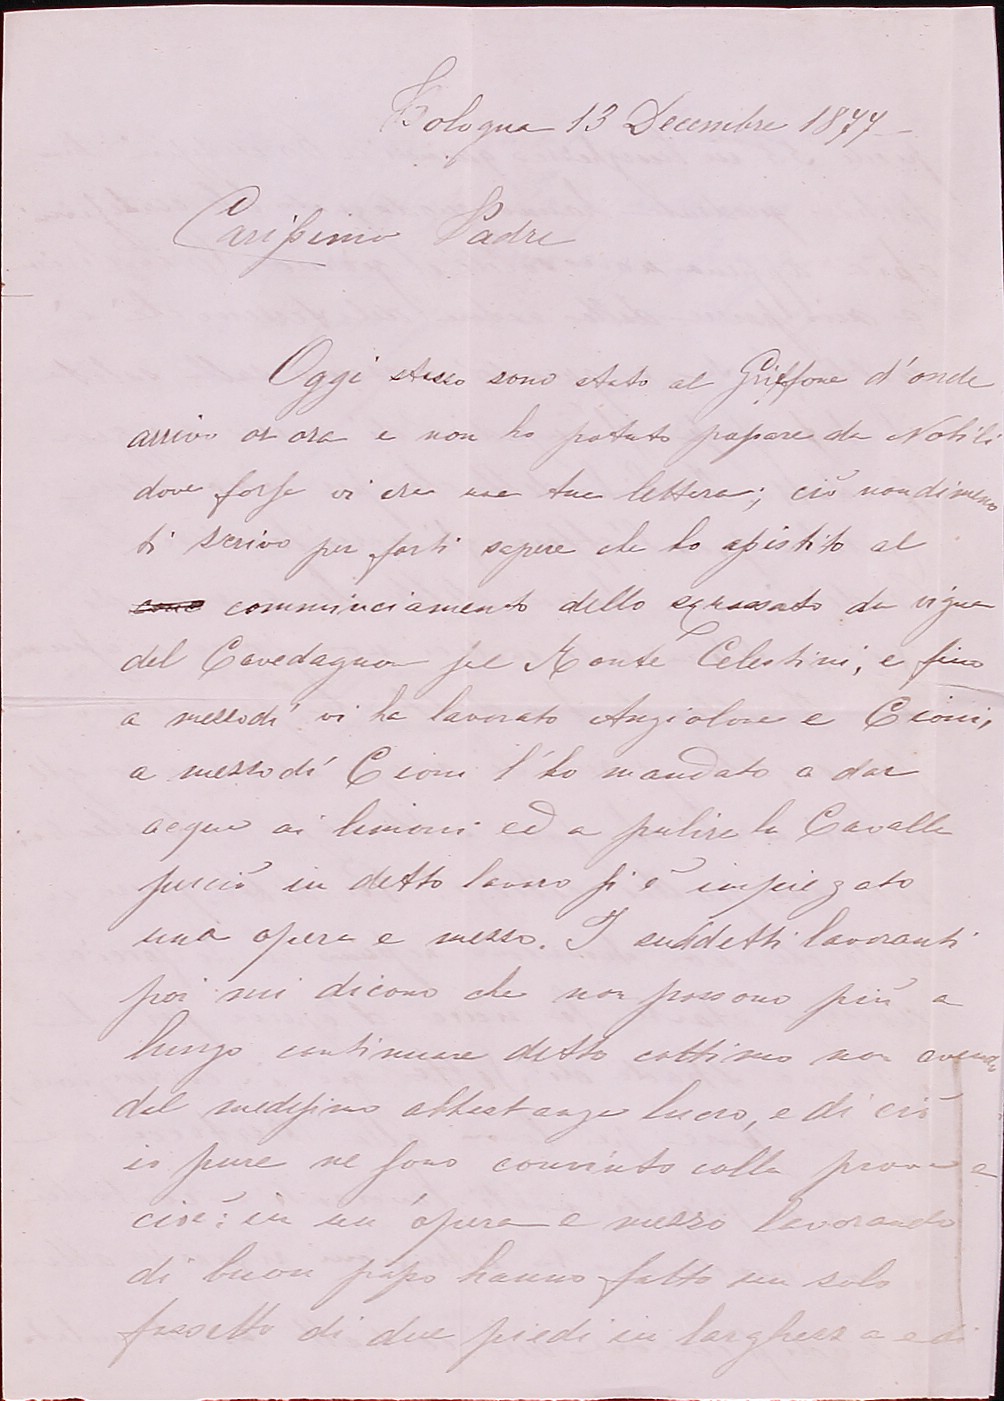 Bologna 13 Decembre 1877
Carissimo Padre
Oggi stesso sono stato al Griffone d'onde
arrivo or ora e non ho potuto passare da Nobili
dove forse vi era una tua lettera; ciò nondimeno
ti scrivo per farti sapere che ho assistito al
comminciamento dello scassato da vigna
del Cavedagnon pel Monte Celestini, e fino
a mezzodì vi ha lavorato Angiolone e Cioni,
a mezzodì Cioni l'ho mandato a dar
acqua ai limoni ed a pulire la Cavalla
perciò in detto lavoro si è impiegato
una opera e mezzo. I suddetti lavoranti
poi mi dicono che non possono più a
lungo continuare detto cottimo non avendo
dal medesimo abbastanza lucro, e di ciò
io pure ne sono convinto colla prova
cioè: in un'opera e mezzo lavorando
di buon passo hanno fatto un solo
fossetto di due piedi in larghezza e di